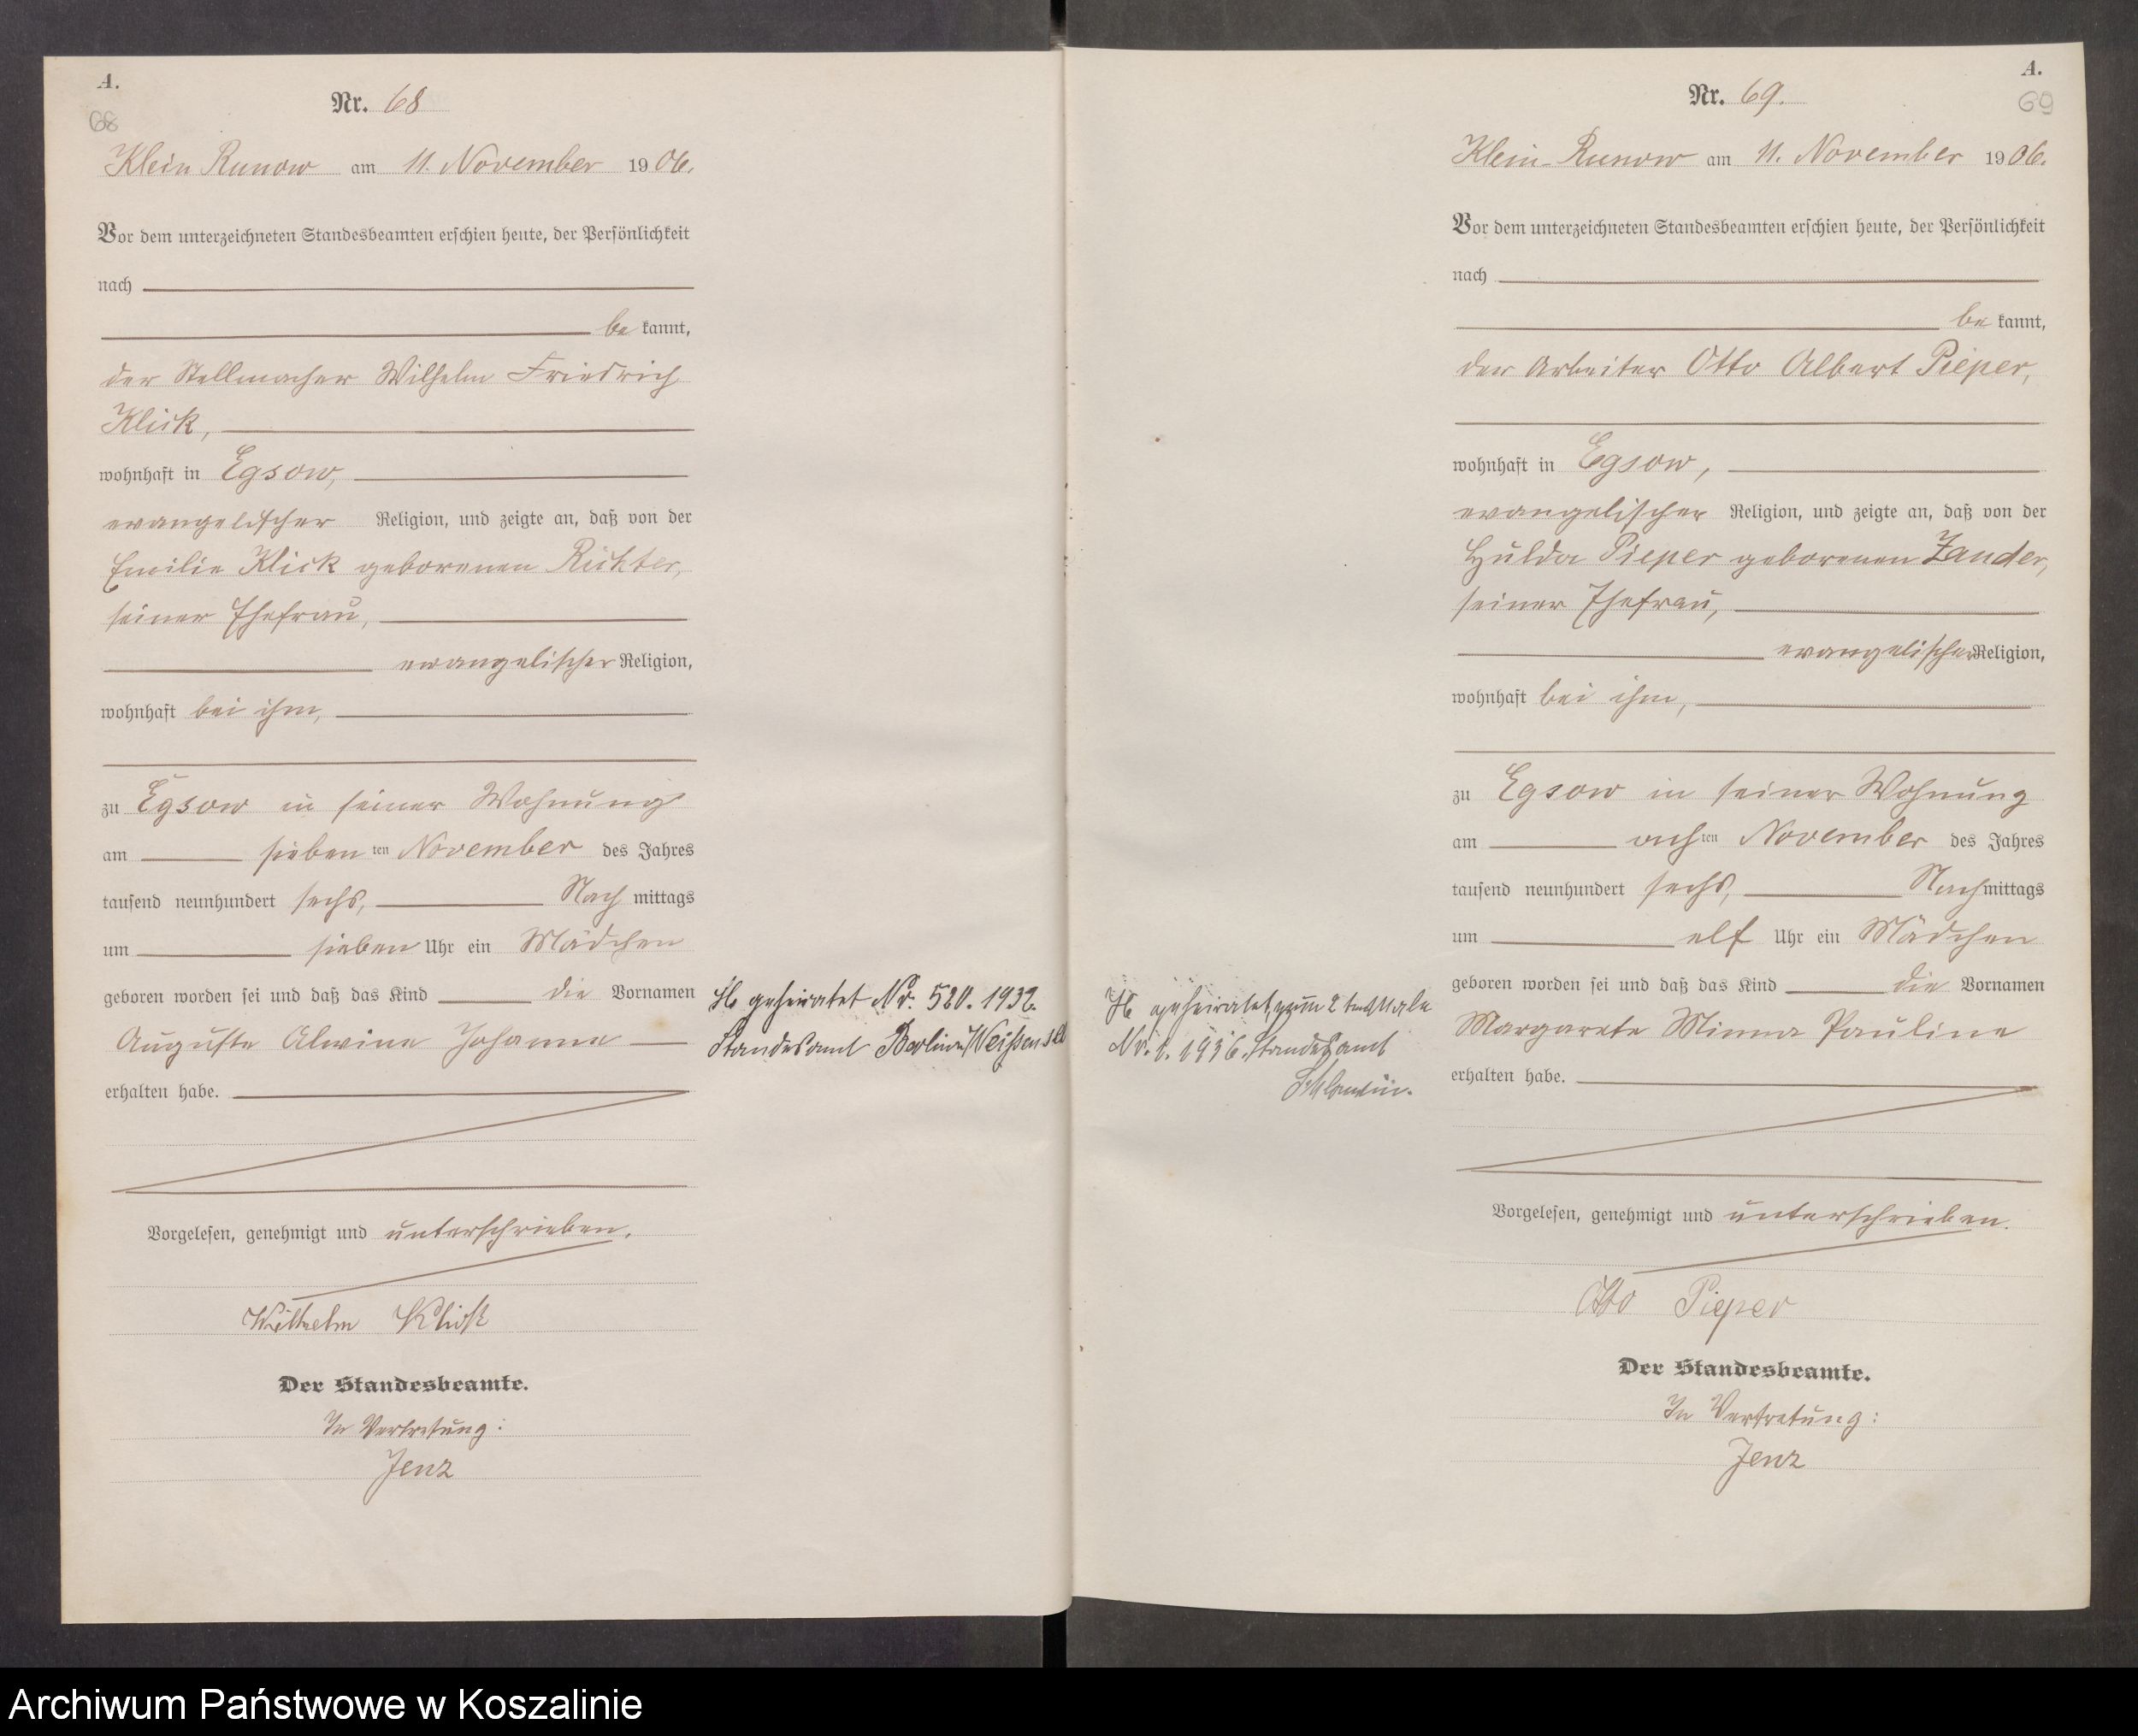 A.
68
Nr. 68
Klein Runow am 11. November 1906.
Vor dem unterzeichneten Standesbeamten erschien heute, der Persönlichkeit
nach
be kannt,
der Stellmacher Wilhelm Friedrich
Klick,
wohnhaft in Egsow,
evangelischer Religion, und zeigte an, daß von der
Emilie Klick geborenen Richter,
seiner Ehefrau,
evangelischer Religion,
wohnhaft bei ihm,
zu Egsow in seiner Wohnung
am sieben ten November des Jahres
tausend neunhundert sechs, Nach mittags
um sieben Uhr ein Mädchen
geboren worden sei und daß das Kind die Vornamen
Auguste Alwine Johanna
erhalten habe.
Vorgelesen, genehmigt und unterschrieben.
Wilhelm Klick
Der Standesbeamte.
In Vertretung:
Jenz
geheiratet Nr. 520. 1932.
Standesamt Berlin/Weissensee
A.
69
Nr. 69.
Klein Runow am 11. November 1906.
Vor dem unterzeichneten Standesbeamten erschien heute, der Persönlichkeit
nach
be kannt,
der Arbeiter Otto Albert Pieper,
wohnhaft in Egsow,
evangelischer Religion, und zeigte an, daß von der
Hulda Pieper geborenen Zander,
seiner Ehefrau,
evangelischer Religion,
wohnhaft bei ihm,
zu Egsow in seiner Wohnung
am ach ten November des Jahres
tausend neunhundert sechs, Nach mittags
um elf Uhr ein Mädchen
geboren worden sei und daß das Kind die Vornamen
Margarete Minna Pauline
erhalten habe.
Vorgelesen, genehmigt und unterschrieben.
Otto Pieper
Der Standesbeamte.
In Vertretung:
Jenz
geheiratet, zum 2ten Male
Nr. 1936. Standesamt
Archiwum Państwowe w Koszalinie